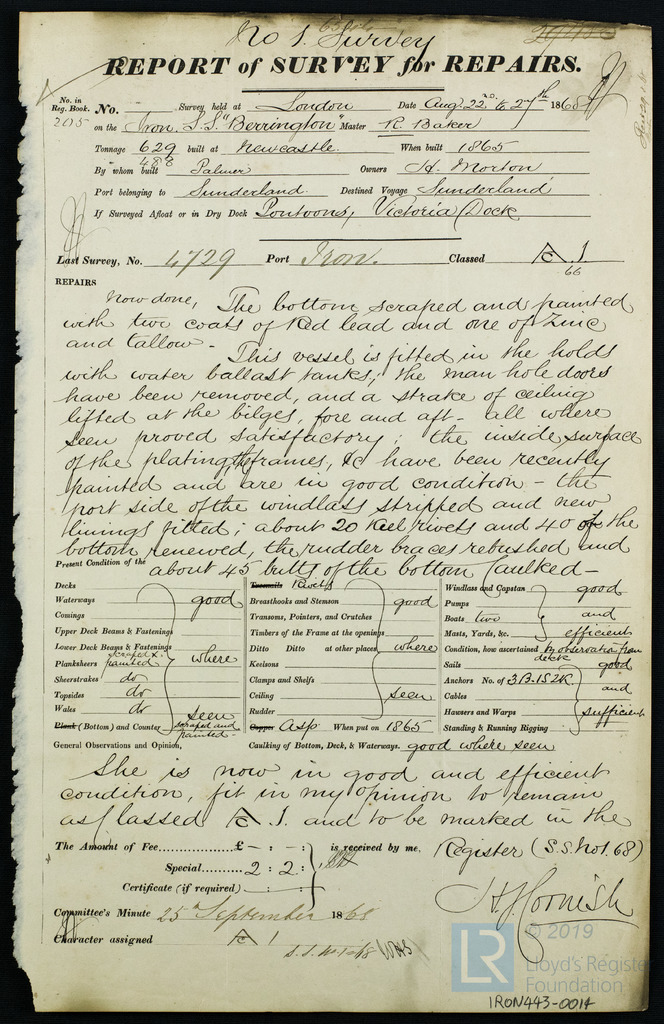 No 1. Survey
REPORT of SURVEY for REPAIRS.
No. in Reg. Book. No. Survey held at London Date Aug. 22nd to 27th 1868
205 on the Iron S.S. "Berrington" Master R. Baker
Tonnage 629 built at Newcastle. When built 1865
488
By whom built Palmer Owners H. Morton
Port belonging to Sunderland Destined Voyage Sunderland
If Surveyed Afloat or in Dry Dock Pontoons, Victoria Dock
Last Survey, No. 4729 Port Iron. Classed A 1
66
REPAIRS
Now done, The bottom scraped and painted
with two coats of Red lead and one of Zinc
and tallow - This vessel is fitted in the holds
with water ballast tanks; the man hole doors
have been removed, and a strake of ceiling
lifted at the bilges, fore and aft - all where
seen proved satisfactory; the inside surface
of the plating, the frames, &c have been recently
painted and are in good condition - the
port side of the windlass stripped and new
linings fitted; about 20 Keel rivets and 40 of the
bottom renewed, the rudder braces rebushed and
about 45 butts of the bottom caulked -
Present Condition of the
Decks
Waterways good
Comings
Upper Deck Beams & Fastenings
Lower Deck Beams & Fastenings where
Planksheers scraped & painted
Sheerstrakes do
Topsides do
Wales do seen
Plank (Bottom) and Counter scraped and painted -
Treenails Rivets
Breasthooks and Stemson good
Transoms, Pointers, and Crutches
Timbers of the Frame at the openings
Ditto Ditto at other places where
Keelsons
Clamps and Shelfs
Ceiling seen
Rudder
Copper Asp When put on 1865
Windlass and Capstan good
Pumps
Boats two and
Masts, Yards, &c. efficient
Condition, how ascertained by observation from deck
Sails good
Anchors No. of 3B.1S.2K and
Cables
Hawsers and Warps sufficient
Standing & Running Rigging
General Observations and Opinion, Caulking of Bottom, Deck, & Waterways. good where seen
She is now in good and efficient
condition, fit in my opinion to remain
as Classed A 1. and to be marked in the
Register (S.S. No 1. 68)
The Amount of Fee £ - : - : is received by me.
Special 2 : 2 :
Certificate (if required) : :
H. J. Cornish
Committee's Minute 25th September 1868
Character assigned A 1
S.S. No 1-68
© 2019
LR Lloyd's Register
Foundation
IRON443-0014